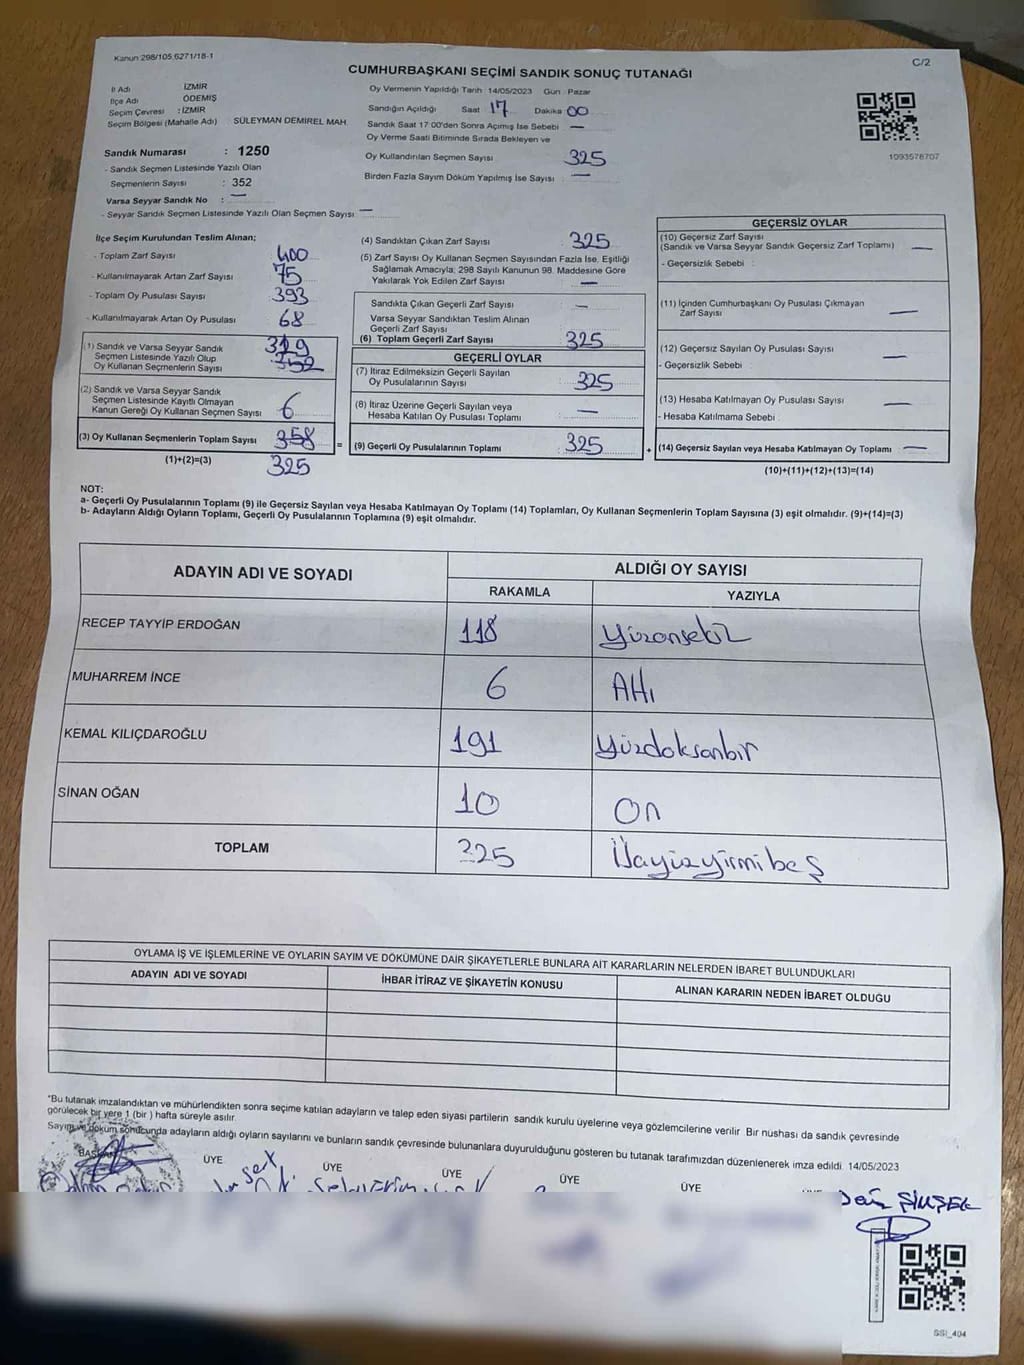 Kanun 298/105,6271/18-1
C/2
CUMHURBAŞKANI SEÇİMİ SANDIK SONUÇ TUTANAĞI
İl Adı İZMİR
İlçe Adı ÖDEMİŞ
Seçim Çevresi : İZMİR
Seçim Bölgesi (Mahalle Adı) SÜLEYMAN DEMİREL MAH.
Sandık Numarası : 1250
- Sandık Seçmen Listesinde Yazılı Olan
Seçmenlerin Sayısı : 352
Varsa Seyyar Sandık No : —
- Seyyar Sandık Seçmen Listesinde Yazılı Olan Seçmen Sayısı —
Oy Vermenin Yapıldığı Tarih 14/05/2023 Gün : Pazar
Sandığın Açıldığı Saat 17 Dakika 00
Sandık Saat 17:00'den Sonra Açımış İse Sebebi —
Oy Verme Saati Bitiminde Sırada Bekleyen ve
Oy Kullandırılan Seçmen Sayısı 325
Birden Fazla Sayım Döküm Yapılmış İse Sayısı —
1093578707
İlçe Seçim Kurulundan Teslim Alınan;
- Toplam Zarf Sayısı 400
- Kullanılmayarak Artan Zarf Sayısı 75
- Toplam Oy Pusulası Sayısı 393
- Kullanılmayarak Artan Oy Pusulası 68
(1) Sandık ve Varsa Seyyar Sandık 319
Seçmen Listesinde Yazılı Olup
Oy Kullanan Seçmenlerin Sayısı 352
(2) Sandık ve Varsa Seyyar Sandık
Seçmen Listesinde Kayıtlı Olmayan
Kanun Gereği Oy Kullanan Seçmen Sayısı 6
(3) Oy Kullanan Seçmenlerin Toplam Sayısı 358
(1)+(2)=(3) 325
=
(4) Sandıktan Çıkan Zarf Sayısı 325
(5) Zarf Sayısı Oy Kullanan Seçmen Sayısından Fazla İse, Eşitliği
Sağlamak Amacıyla; 298 Sayılı Kanunun 98. Maddesine Göre
Yakılarak Yok Edilen Zarf Sayısı —
Sandıkta Çıkan Geçerli Zarf Sayısı —
Varsa Seyyar Sandıktan Teslim Alınan
Geçerli Zarf Sayısı
(6) Toplam Geçerli Zarf Sayısı 325
GEÇERLİ OYLAR
(7) İtiraz Edilmeksizin Geçerli Sayılan
Oy Pusulalarının Sayısı 325
(8) İtiraz Üzerine Geçerli Sayılan veya
Hesaba Katılan Oy Pusulası Toplamı —
(9) Geçerli Oy Pusulalarının Toplamı 325
+
GEÇERSİZ OYLAR
(10) Geçersiz Zarf Sayısı
(Sandık ve Varsa Seyyar Sandık Geçersiz Zarf Toplamı) —
- Geçersizlik Sebebi :
(11) İçinden Cumhurbaşkanı Oy Pusulası Çıkmayan
Zarf Sayısı —
(12) Geçersiz Sayılan Oy Pusulası Sayısı —
- Geçersizlik Sebebi :
(13) Hesaba Katılmayan Oy Pusulası Sayısı —
- Hesaba Katılmama Sebebi :
(14) Geçersiz Sayılan veya Hesaba Katılmayan Oy Toplamı —
(10)+(11)+(12)+(13)=(14)
NOT:
a- Geçerli Oy Pusulalarının Toplamı (9) ile Geçersiz Sayılan veya Hesaba Katılmayan Oy Toplamı (14) Toplamları, Oy Kullanan Seçmenlerin Toplam Sayısına (3) eşit olmalıdır. (9)+(14)=(3)
b- Adayların Aldığı Oyların Toplamı, Geçerli Oy Pusulalarının Toplamına (9) eşit olmalıdır.
ADAYIN ADI VE SOYADI
ALDIĞI OY SAYISI
RAKAMLA YAZIYLA
RECEP TAYYİP ERDOĞAN 118 Yüzonsekiz
MUHARREM İNCE 6 Altı
KEMAL KILIÇDAROĞLU 191 Yüzdoksanbir
SİNAN OĞAN 10 On
TOPLAM 325
OYLAMA İŞ VE İŞLEMLERİNE VE OYLARIN SAYIM VE DÖKÜMÜNE DAİR ŞİKAYETLERLE BUNLARA AİT KARARLARIN NELERDEN İBARET BULUNDUKLARI
ADAYIN ADI VE SOYADI İHBAR İTİRAZ VE ŞİKAYETİN KONUSU ALINAN KARARIN NEDEN İBARET OLDUĞU
*Bu tutanak imzalandıktan ve mühürlendikten sonra seçime katılan adayların ve talep eden siyasi partilerin sandık kurulu üyelerine veya gözlemcilerine verilir. Bir nüshası da sandık çevresinde
görülecek bir yere 1 (bir) hafta süreyle asılır.
Sayım ve döküm sonucunda adayların aldığı oyların sayılarını ve bunların sandık çevresinde bulunanlara duyurulduğunu gösteren bu tutanak tarafımızdan düzenlenerek imza edildi. 14/05/2023
BAŞKAN ÜYE ÜYE ÜYE ÜYE ÜYE
ŞİMŞEK
SSI_404